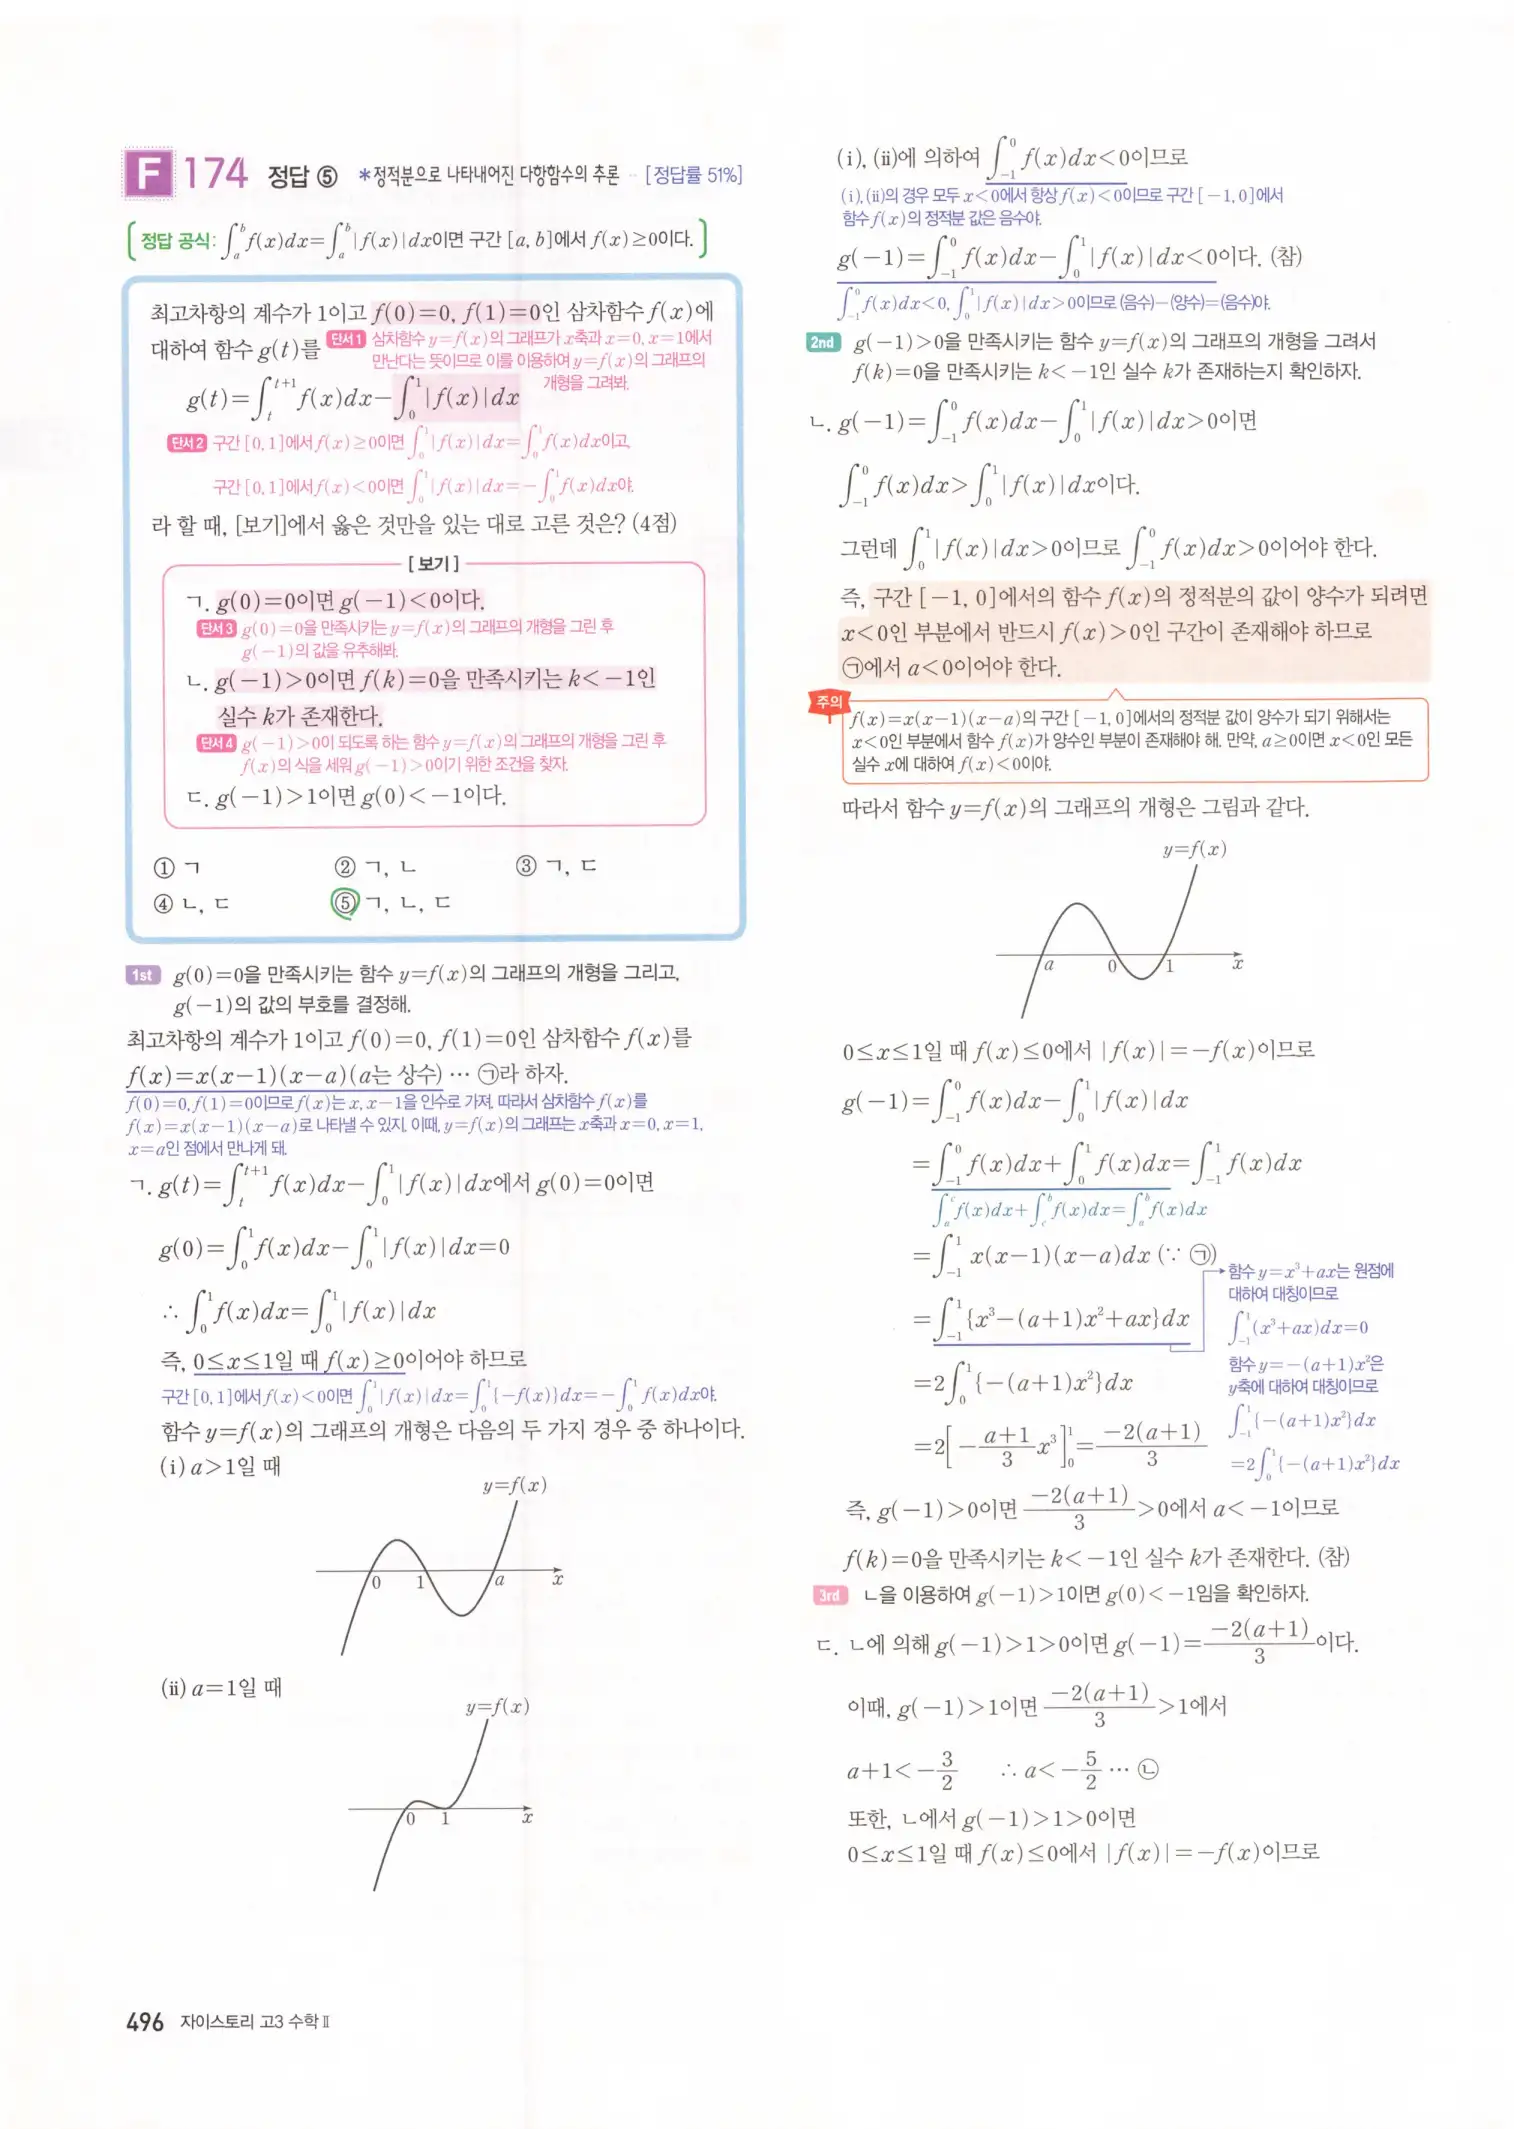 F 174 정답 ⑤ *정적분으로 나타내어진 다항함수의 추론 ·· [정답률 51%]
정답 공식: ∫_a^b f(x)dx=∫_a^b |f(x)|dx이면 구간 [a, b]에서 f(x)≥0이다.
최고차항의 계수가 1이고 f(0)=0, f(1)=0인 삼차함수 f(x)에
대하여 함수 g(t)를 단서1 삼차함수 y=f(x)의 그래프가 x축과 x=0, x=1에서
만난다는 뜻이므로 이를 이용하여 y=f(x)의 그래프의
개형을 그려봐.
g(t)=∫_t^{t+1} f(x)dx-∫_0^1 |f(x)|dx
단서2 구간 [0, 1]에서 f(x)≥0이면 ∫_0^1 |f(x)|dx=∫_0^1 f(x)dx이고,
구간 [0, 1]에서 f(x)<0이면 ∫_0^1 |f(x)|dx=-∫_0^1 f(x)dx야.
라 할 때, [보기]에서 옳은 것만을 있는 대로 고른 것은? (4점)
[보기]
ㄱ. g(0)=0이면 g(-1)<0이다.
단서3 g(0)=0을 만족시키는 y=f(x)의 그래프의 개형을 그린 후
g(-1)의 값을 유추해봐.
ㄴ. g(-1)>0이면 f(k)=0을 만족시키는 k<-1인
실수 k가 존재한다.
단서4 g(-1)>0이 되도록 하는 함수 y=f(x)의 그래프의 개형을 그린 후
f(x)의 식을 세워 g(-1)>0이기 위한 조건을 찾자.
ㄷ. g(-1)>1이면 g(0)<-1이다.
① ㄱ ② ㄱ, ㄴ ③ ㄱ, ㄷ
④ ㄴ, ㄷ ⑤ ㄱ, ㄴ, ㄷ
1st g(0)=0을 만족시키는 함수 y=f(x)의 그래프의 개형을 그리고,
g(-1)의 값의 부호를 결정해.
최고차항의 계수가 1이고 f(0)=0, f(1)=0인 삼차함수 f(x)를
f(x)=x(x-1)(x-a)(a는 상수) … ㉠라 하자.
f(0)=0, f(1)=0이므로 f(x)는 x, x-1을 인수로 가져. 따라서 삼차함수 f(x)를
f(x)=x(x-1)(x-a)로 나타낼 수 있지. 이때, y=f(x)의 그래프는 x축과 x=0, x=1,
x=a인 점에서 만나게 돼.
ㄱ. g(t)=∫_t^{t+1} f(x)dx-∫_0^1 |f(x)|dx에서 g(0)=0이면
g(0)=∫_0^1 f(x)dx-∫_0^1 |f(x)|dx=0
∴ ∫_0^1 f(x)dx=∫_0^1 |f(x)|dx
즉, 0≤x≤1일 때 f(x)≥0이어야 하므로
구간 [0, 1]에서 f(x)<0이면 ∫_0^1 |f(x)|dx=∫_0^1 {-f(x)}dx=-∫_0^1 f(x)dx야.
함수 y=f(x)의 그래프의 개형은 다음의 두 가지 경우 중 하나이다.
(i) a>1일 때
y=f(x)
0 1 a x
(ii) a=1일 때
y=f(x)
0 1 x
496 자이스토리 고3 수학Ⅱ
(i), (ii)에 의하여 ∫_{-1}^0 f(x)dx<0이므로
(i), (ii)의 경우 모두 x<0에서 항상 f(x)<0이므로 구간 [-1, 0]에서
함수 f(x)의 정적분 값은 음수야.
g(-1)=∫_{-1}^0 f(x)dx-∫_0^1 |f(x)|dx<0이다. (참)
∫_{-1}^0 f(x)dx<0, ∫_0^1 |f(x)|dx>0이므로 (음수)-(양수)=(음수)야.
2nd g(-1)>0을 만족시키는 함수 y=f(x)의 그래프의 개형을 그려서
f(k)=0을 만족시키는 k<-1인 실수 k가 존재하는지 확인하자.
ㄴ. g(-1)=∫_{-1}^0 f(x)dx-∫_0^1 |f(x)|dx>0이면
∫_{-1}^0 f(x)dx>∫_0^1 |f(x)|dx이다.
그런데 ∫_0^1 |f(x)|dx>0이므로 ∫_{-1}^0 f(x)dx>0이어야 한다.
즉, 구간 [-1, 0]에서의 함수 f(x)의 정적분의 값이 양수가 되려면
x<0인 부분에서 반드시 f(x)>0인 구간이 존재해야 하므로
㉠에서 a<0이어야 한다.
주의
f(x)=x(x-1)(x-a)의 구간 [-1, 0]에서의 정적분 값이 양수가 되기 위해서는
x<0인 부분에서 함수 f(x)가 양수인 부분이 존재해야 해. 만약, a≥0이면 x<0인 모든
실수 x에 대하여 f(x)<0이야.
따라서 함수 y=f(x)의 그래프의 개형은 그림과 같다.
y=f(x)
a 0 1 x
0≤x≤1일 때 f(x)≤0에서 |f(x)|=-f(x)이므로
g(-1)=∫_{-1}^0 f(x)dx-∫_0^1 |f(x)|dx
=∫_{-1}^0 f(x)dx+∫_0^1 f(x)dx=∫_{-1}^1 f(x)dx
∫_a^c f(x)dx+∫_c^b f(x)dx=∫_a^b f(x)dx
=∫_{-1}^1 x(x-1)(x-a)dx (∵ ㉠)
=∫_{-1}^1 {x³-(a+1)x²+ax}dx
=2∫_0^1 {-(a+1)x²}dx
=2[-(a+1)/3 x³]_0^1=-2(a+1)/3
함수 y=x³+ax는 원점에
대하여 대칭이므로
∫_{-1}^1 (x³+ax)dx=0
함수 y=-(a+1)x²은
y축에 대하여 대칭이므로
∫_{-1}^1 {-(a+1)x²}dx
=2∫_0^1 {-(a+1)x²}dx
즉, g(-1)>0이면 -2(a+1)/3>0에서 a<-1이므로
f(k)=0을 만족시키는 k<-1인 실수 k가 존재한다. (참)
3rd ㄴ을 이용하여 g(-1)>1이면 g(0)<-1임을 확인하자.
ㄷ. ㄴ에 의해 g(-1)>1>0이면 g(-1)=-2(a+1)/3이다.
이때, g(-1)>1이면 -2(a+1)/3>1에서
a+1<-3/2 ∴ a<-5/2 … ㉡
또한, ㄴ에서 g(-1)>1>0이면
0≤x≤1일 때 f(x)≤0에서 |f(x)|=-f(x)이므로